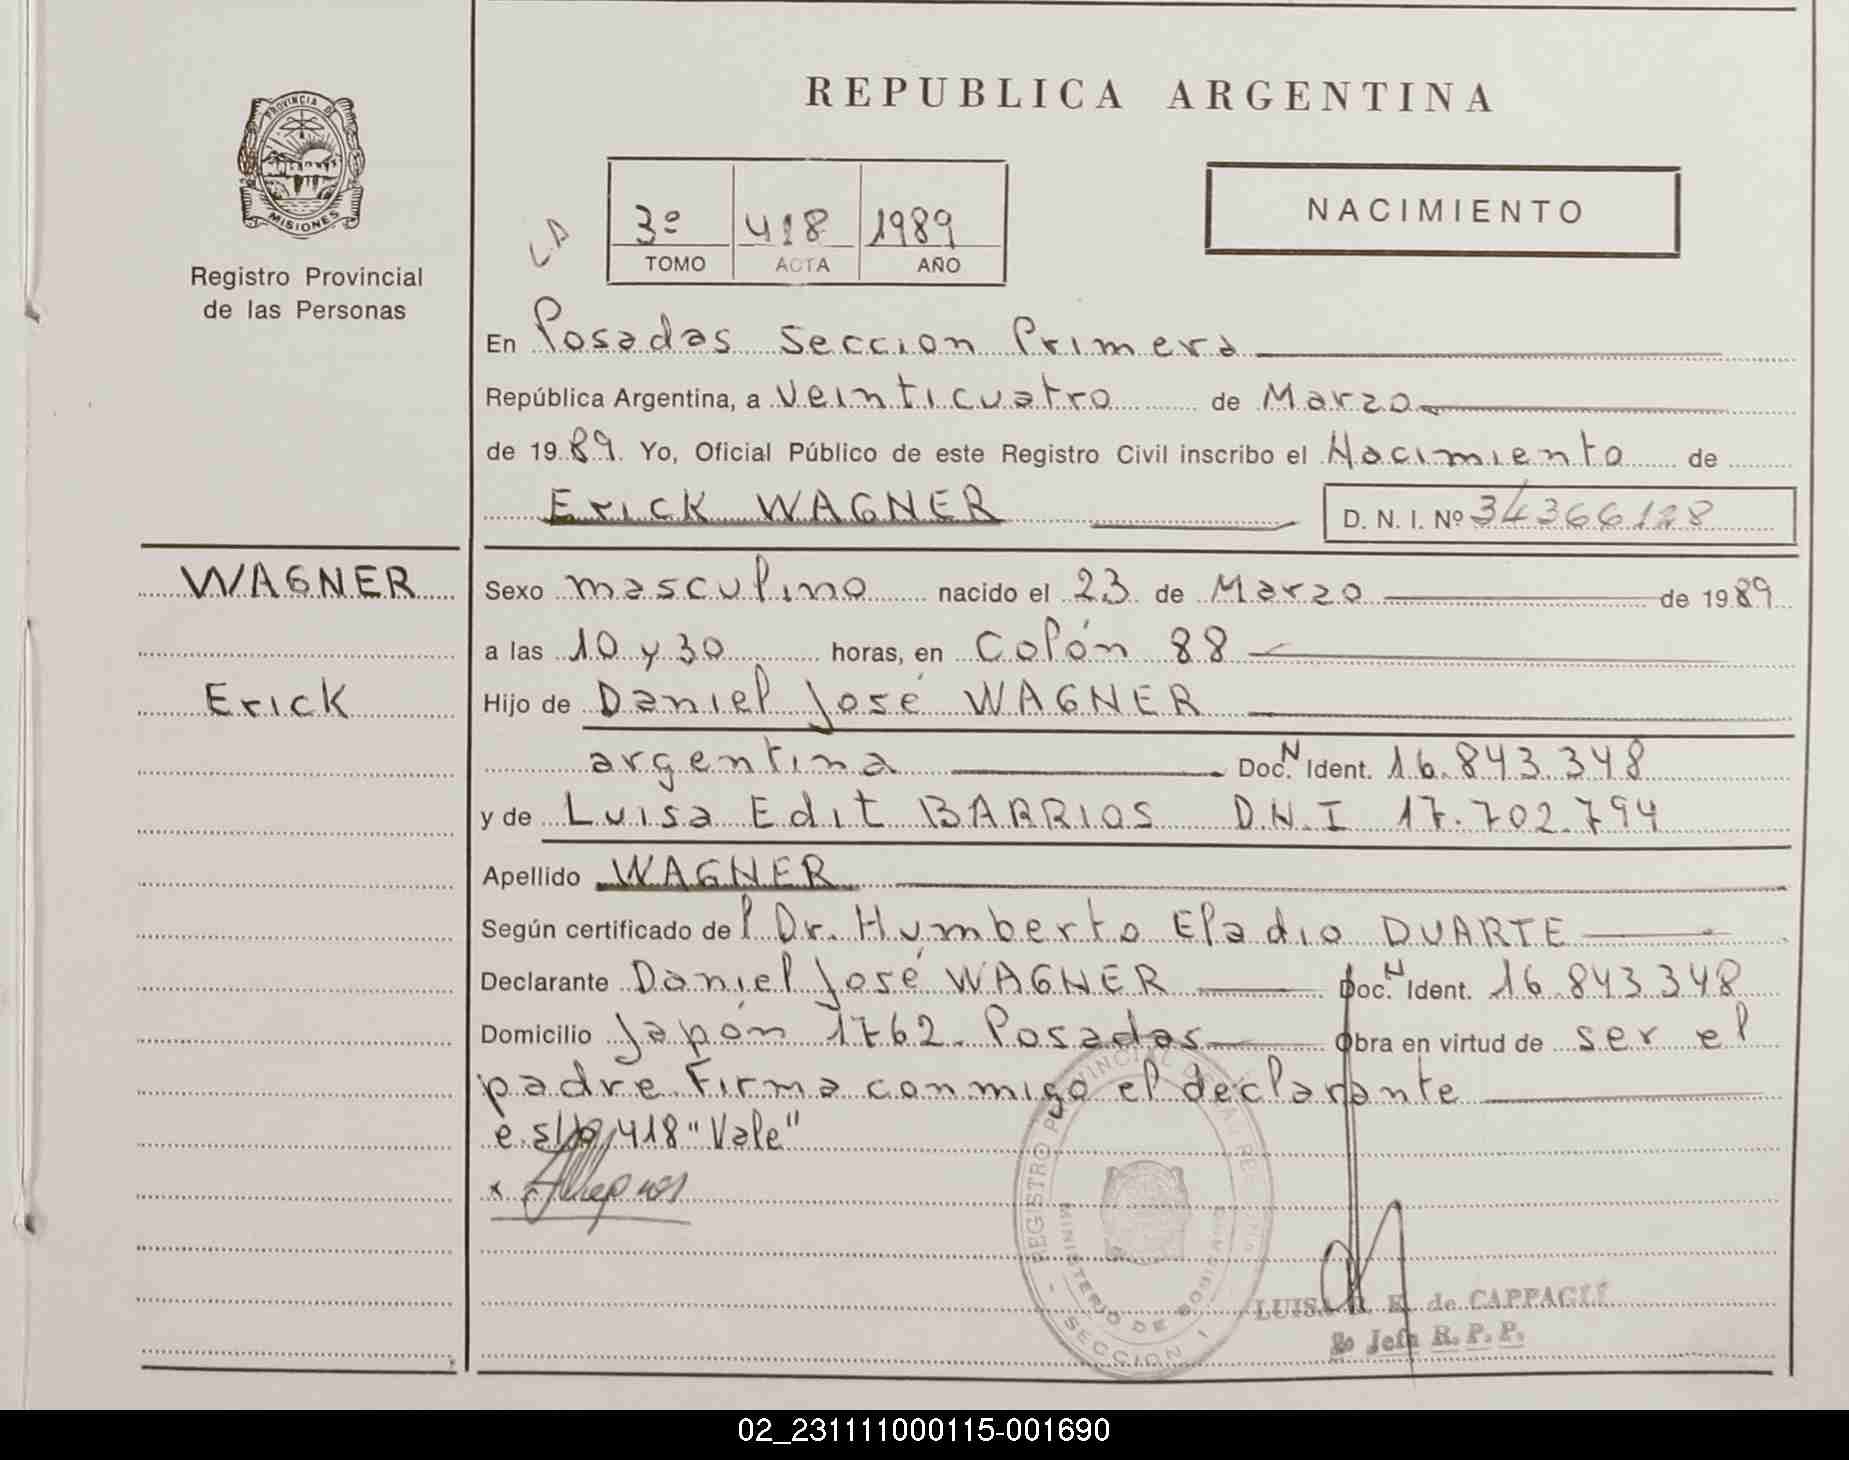 REPUBLICA ARGENTINA
PROVINCIA DE
MISIONES
Registro Provincial
de las Personas
3º 418 1989
TOMO ACTA AÑO
NACIMIENTO
En Posadas Seccion Primera
República Argentina, a Veinticuatro de Marzo
de 1989. Yo, Oficial Público de este Registro Civil inscribo el Nacimiento de
Erick WAGNER D. N. I. Nº 34366128
WAGNER
Erick
Sexo masculino nacido el 23 de Marzo de 1989
a las 10 y 30 horas, en Colón 88
Hijo de Daniel José WAGNER
argentina Doc. N Ident. 16.843.348
y de Luisa Edit BARRIOS D.N.I 17.702.794
Apellido WAGNER
Según certificado del Dr. Humberto Eladio DUARTE
Declarante Daniel José WAGNER Doc. N Ident. 16.843.348
Domicilio Japón 1762. Posadas Obra en virtud de ser el
padre. Firma conmigo el declarante
e. s/r 418 "Vale"
REGISTRO PROVINCIAL DE LAS PERSONAS
MINISTERIO DE GOBIERNO
SECCION 1
LUISA de CAPPAGLI
Jefa R. P. P.
02_231111000115-001690